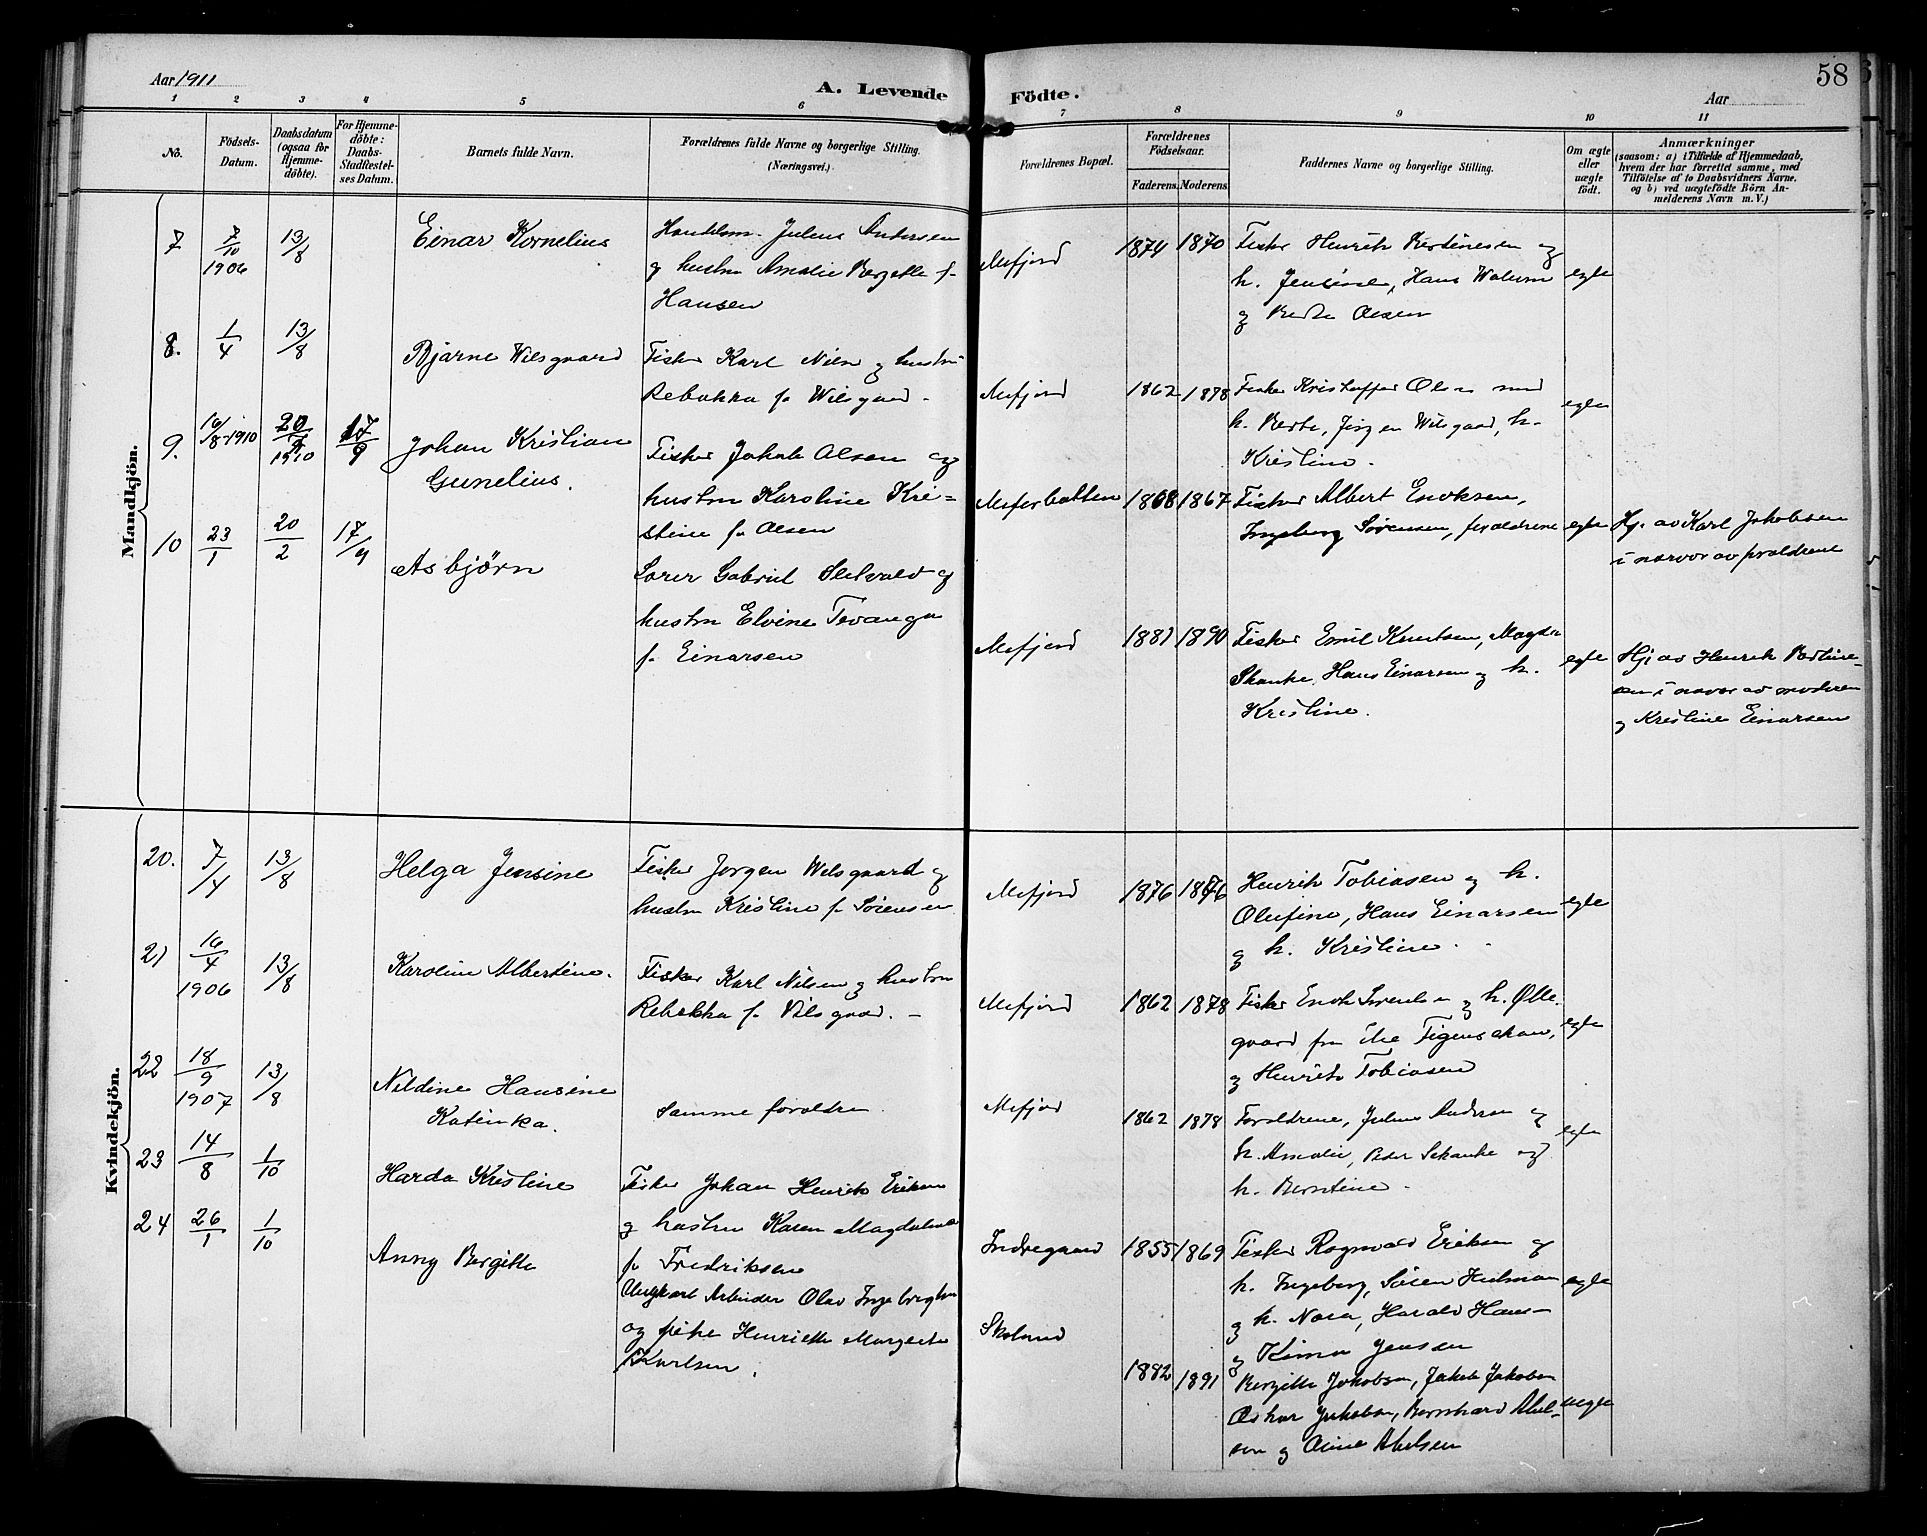 Aar 1911
A. Levende Födte.
Aar
58
1 2 3 4 5 6 7 8 9 10 11
No.
Födsels-
Datum.
Daabsdatum
(ogsaa for
Hjemme-
döbte).
For Hjemme-
döbte:
Daabs-
Stadfestel-
ses Datum.
Barnets fulde Navn.
Forældrenes fulde Navne og borgerlige Stilling.
(Næringsvei.)
Forældrenes Bopæl.
Forældrenes
Födselsaar.
Faderens. Moderens.
Faddernes Navne og borgerlige Stilling.
Om ægte
eller
uægte
födt.
Anmærkninger
(saasom: a) i Tilfælde af Hjemmedaab,
hvem der har forrettet samme, med
Tilföielse af to Daabsvidners Navne.
og b) ved uægtefödte Börn An-
melderens Navn m. V.)
Mandkjön.
7
7/10
1906
13/8
Einar Kornelius
Handelsm. Julius Andersen
og hustru Amalie Bergitte f.
Hansen
Mefjord
1874 1870
Fisker Henrik Bertinesen og
h. Jensine, Hans
og Berte Olsen
egte
8.
1/4
13/8
Bjarne Wilsgaard
Fisker Karl Nilsen og hustru
Rebekka f. Wilsgaard.
Mefjord
1862 1878
Fisker Kristoffer Olsen med
h. Berte, Jørgen Wilsgaard, h.
Kristine.
egte
9.
16/8 1910
20/9
1910
17/9
Johan Kristian
Gunelius.
Fisker Jakob Olsen og
hustru Karoline Kri-
stine f. Olsen
Mefjorbotten
1868 1867
Fisker Albert Enoksen,
Ingeborg Sørensen, foraldrene
egte
Hj. av Karl Jakobsen
i narvar av foraldrene
10
23/1
20/2
17/9
Asbjørn
Gabriel Sletvold og
hustru Elvine Tovanga
f. Einarsen
Mefjord
1881 1890
Fisker Emil Knutsen, Magda
Skanke, Hans Einarsen og h.
Kristine.
egte
Hj. av Henrik Bertine-
sen i narvar av moderen
og Kristine Einarsen
Kvindekjön.
20.
7/4
13/8
Helga Jensine
Fisker Jørgen Wilsgaard og
hustru Kristine f. Sørensen
Mefjord
1876 1876
Henrik Tobiasen og h.
Olufine, Hans Einarsen
og h. Kristine.
egte
21
16/4
1906
13/8
Karoline Albertine.
Fisker Karl Nilsen og hustru
Rebekka f. Vilsgaard.
Mefjord
1862 1878
Fisker Enok Sørensen og h. Olle-
gaard fra
og Henrik Tobiasen
egte
22
18/9
1907
13/8
Nildine Hansine
Katinka.
Samme foraldre.
Mefjord
1862 1878
Foraldrene, Julius Andersen og
h. Amalie, Peder Skanke og
h. Berntine.
egte
23
14/8
1/10
Harda Kristine
Fisker Johan Henrik Eriksen
og hustru Karen Magdalena
f. Fredriksen
Indregaard
1855 1869
Fisker Rognvald Eriksen og
h. Ingeborg, Søren
og h. Nora, Harald Hans-
og Kima Jensen
egte
24
26/1
1/10
Anny Bergitte
Ungkarl Arbeider Olav Ingebrigtsen
og pike Henriette Margrete
Karlsen.
Skaland
1882 1891
Bergitte Jakobsen, Jakob Jakobsen
Oskar Jakobsen, Bernhard Abel-
sen og Anna Abelsen
uegte